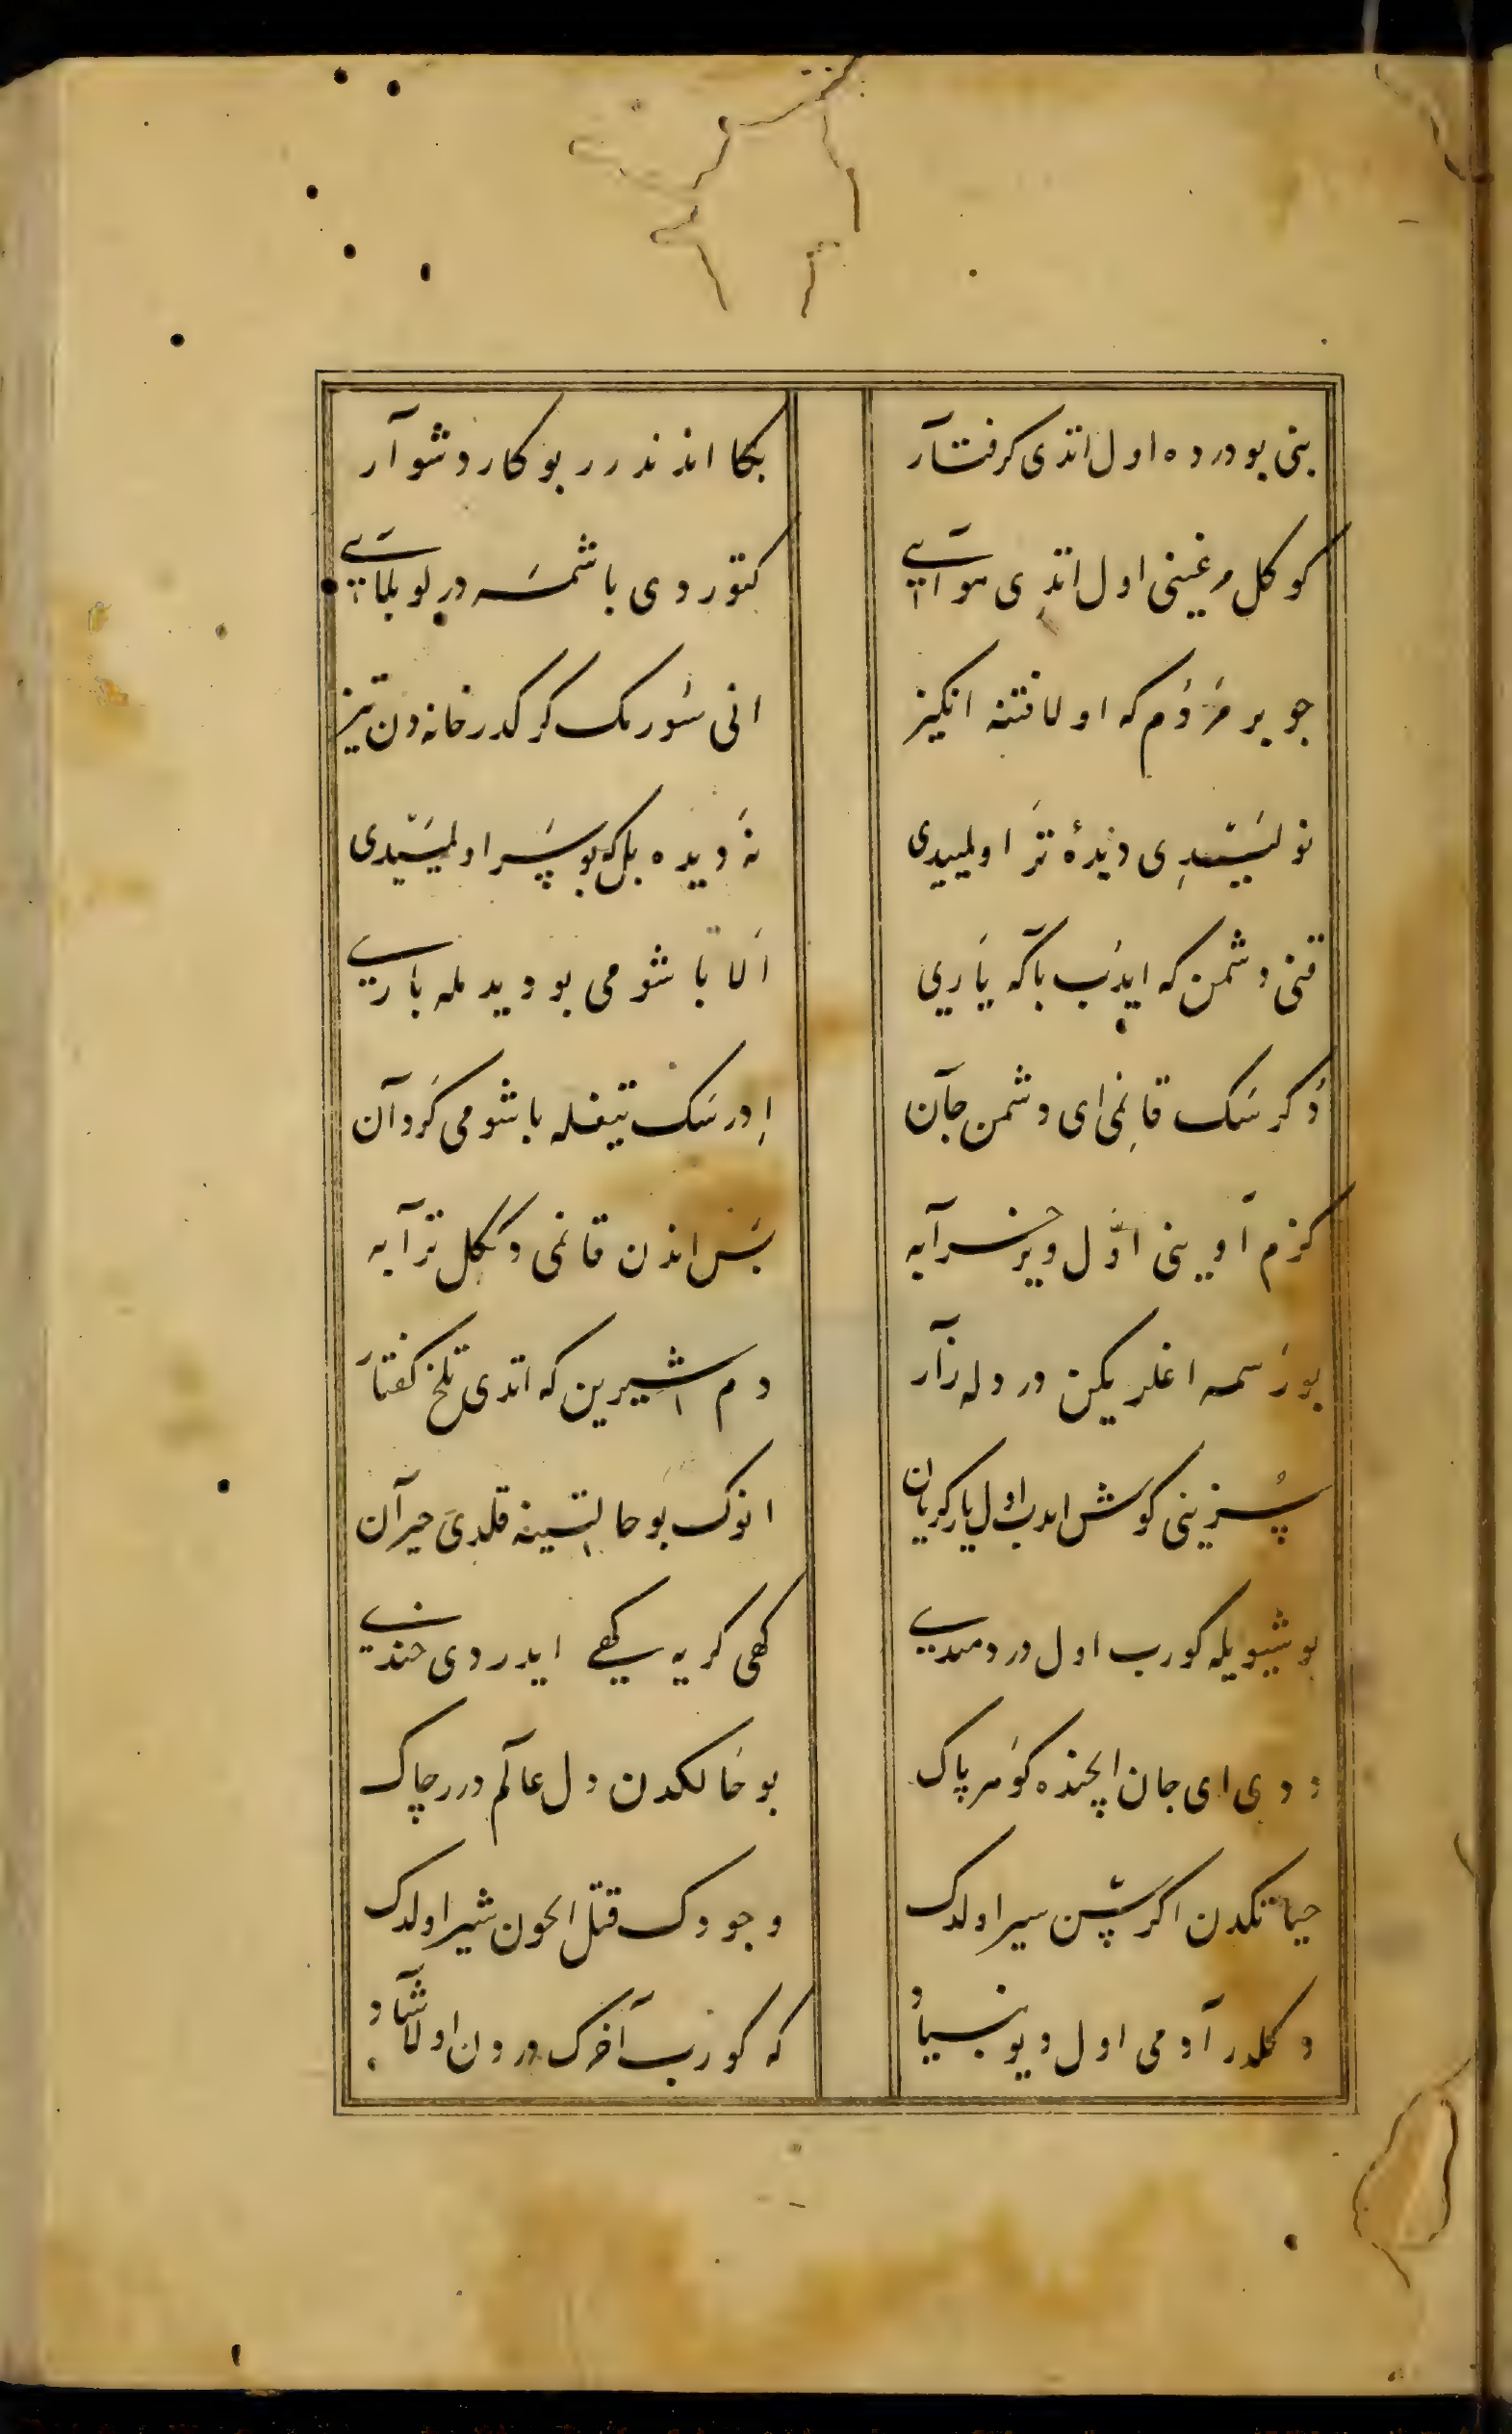 بنی بو درده اول اتدی کرفتآر
بکا اندندرر بو کار دشوآر
کوکل مرغینی اول اتدی هوآیی
کتوردی باشمه در لو بلایی
چو بر مردم که اولا فتنه انکیز
انی سورمک کرکدر خانه دن تیز
نولیتیدی دیدهٔ تر اولمیدی
نه دیده بلکه بو سر اولمیتیدی
قنی دشمن که ایدب باکه یاری
الا باشومی بو دیدمله باری
دکرسک قانمی ای دشمن جآن
ادرسک تیغله باشومی کردآن
کزم آوینی اول ویر خرآبه
بس اندن قانمی دککل ترآبه
بو رسمه اغلریکن درد له زآر
دم شیرین که اتدی تلخ کفتآر
سزینی کوش ادب اول یار کریان
انوک بو حالتینه قلدی حیرآن
بو شیویله کورب اول دردمندی
کهی کریه کهی ایدردی خندی
ددی ای جان ایچنده کوهر پاک
بو حالکدن دل عالم درر چاک
حیاتکدن اکر سن سیر اولدک
وجودک قتل ایچون شیر اولدک
دکلدر آدمی اول دیو بنیاد
که کورب آخرک دردن اولا شاد